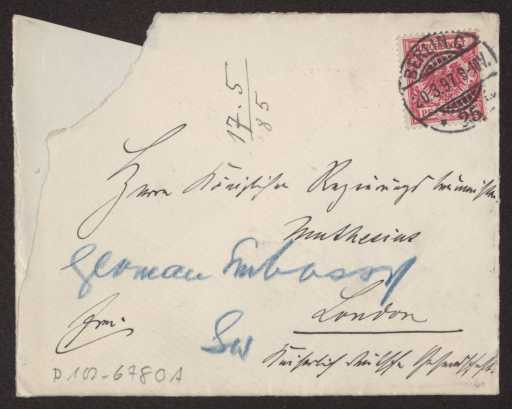 BERLIN.W.
20.3.97.9-10V.
* 35
17.5
85
Herrn Königlicher Regierungsbaumeister
Muthesius
German Embassy
frei.
London
SW
Kaiserlich Deutsche Botschaft.
D 102-6780A